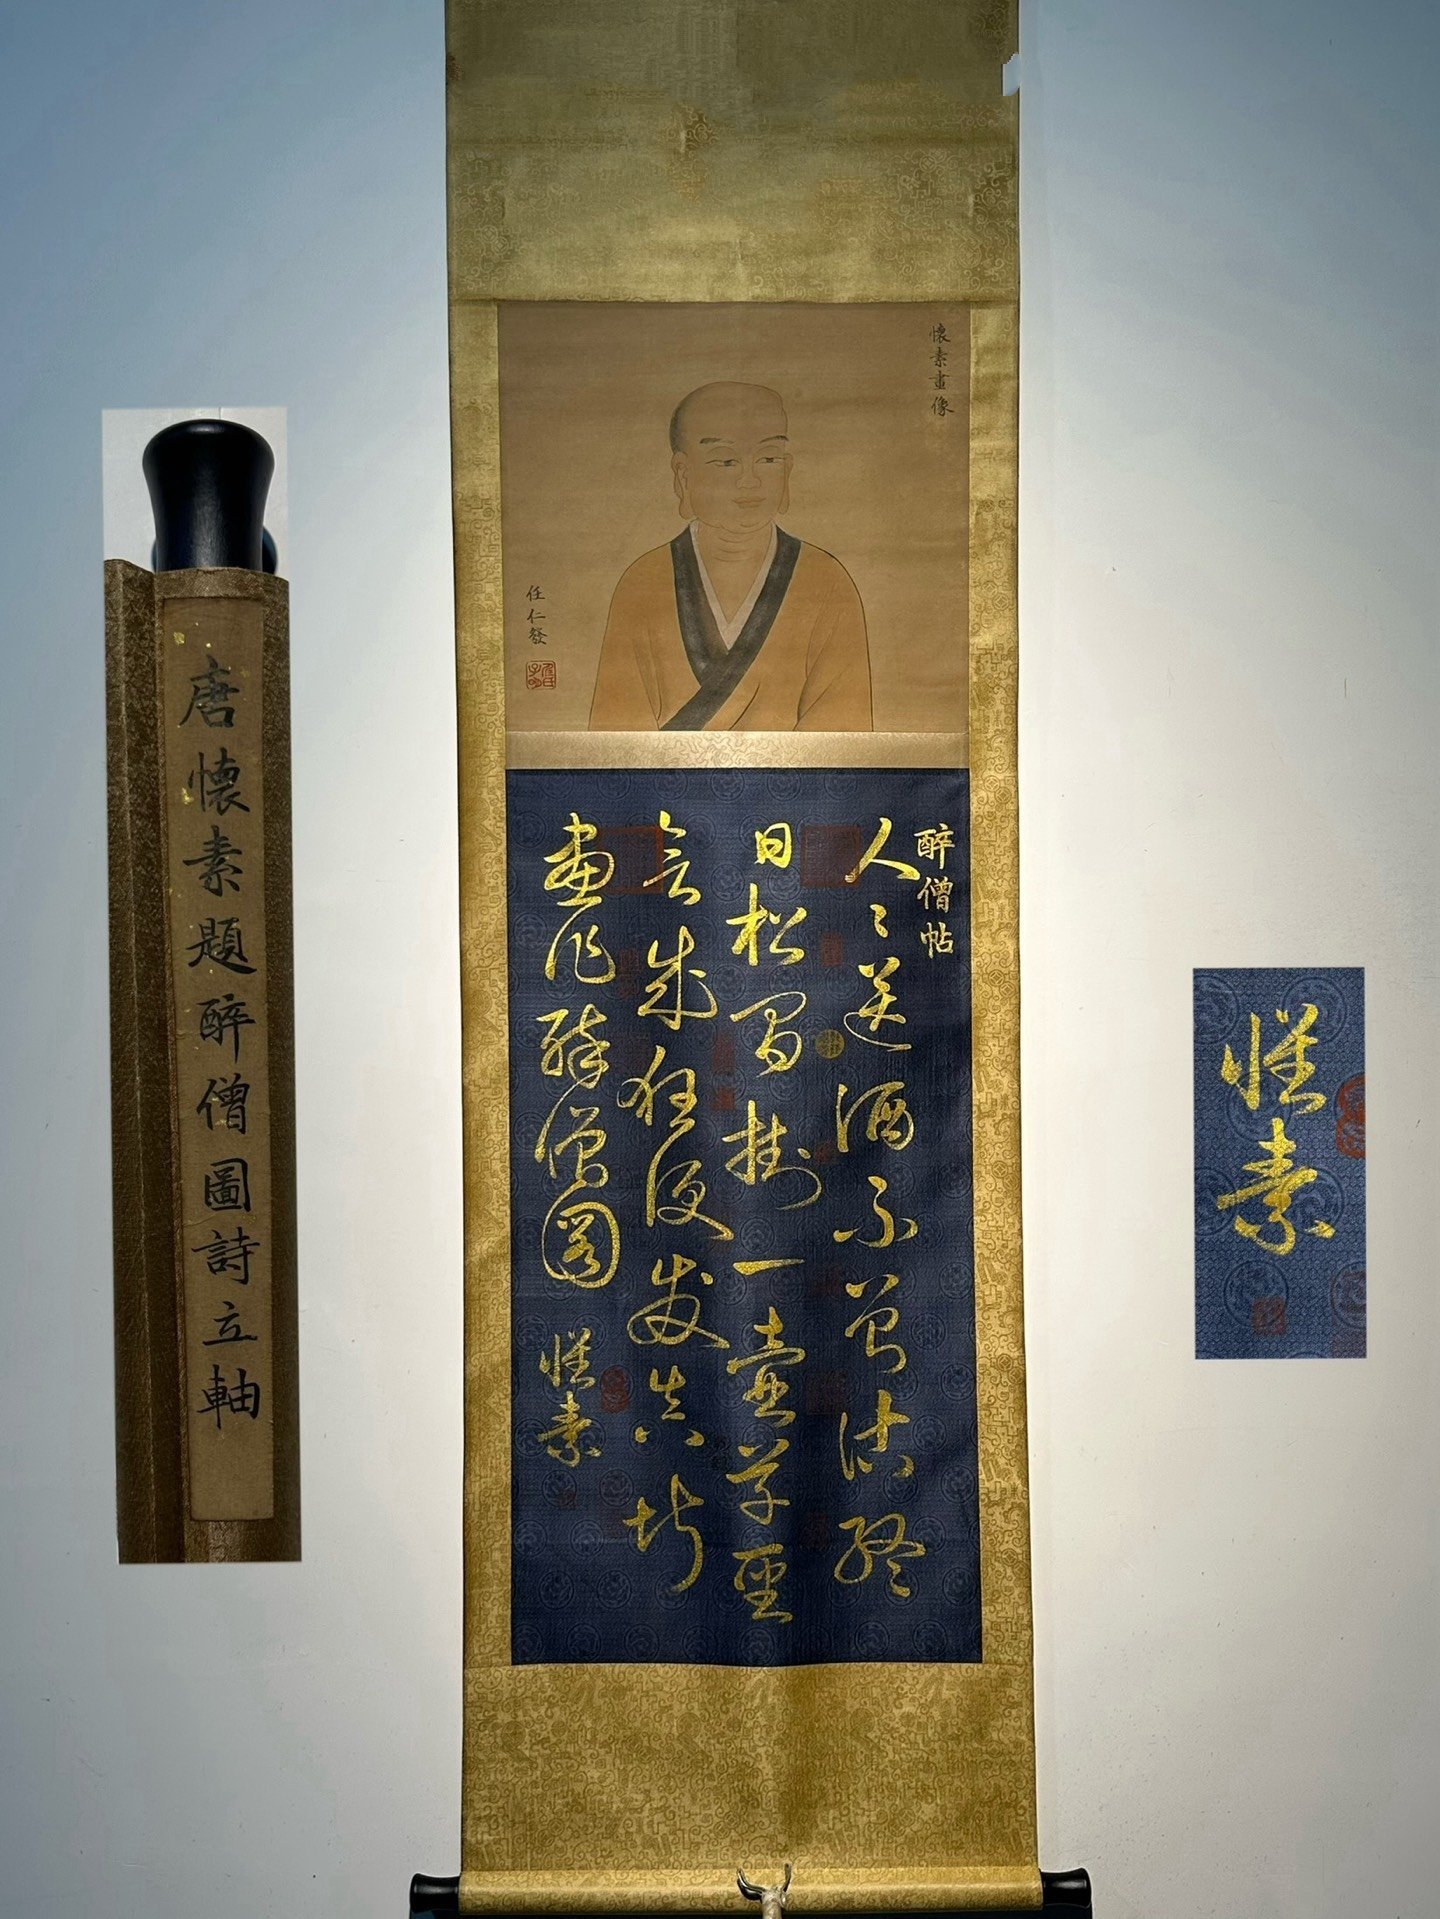 唐懷素題醉僧圖詩立軸
懷素畫像
任仁發
任氏子明
醉僧帖
人々送酒不曾沽終
日松間掛一壺草聖
欲成狂便發真堪
畫作醉僧圖
懷素
懷素